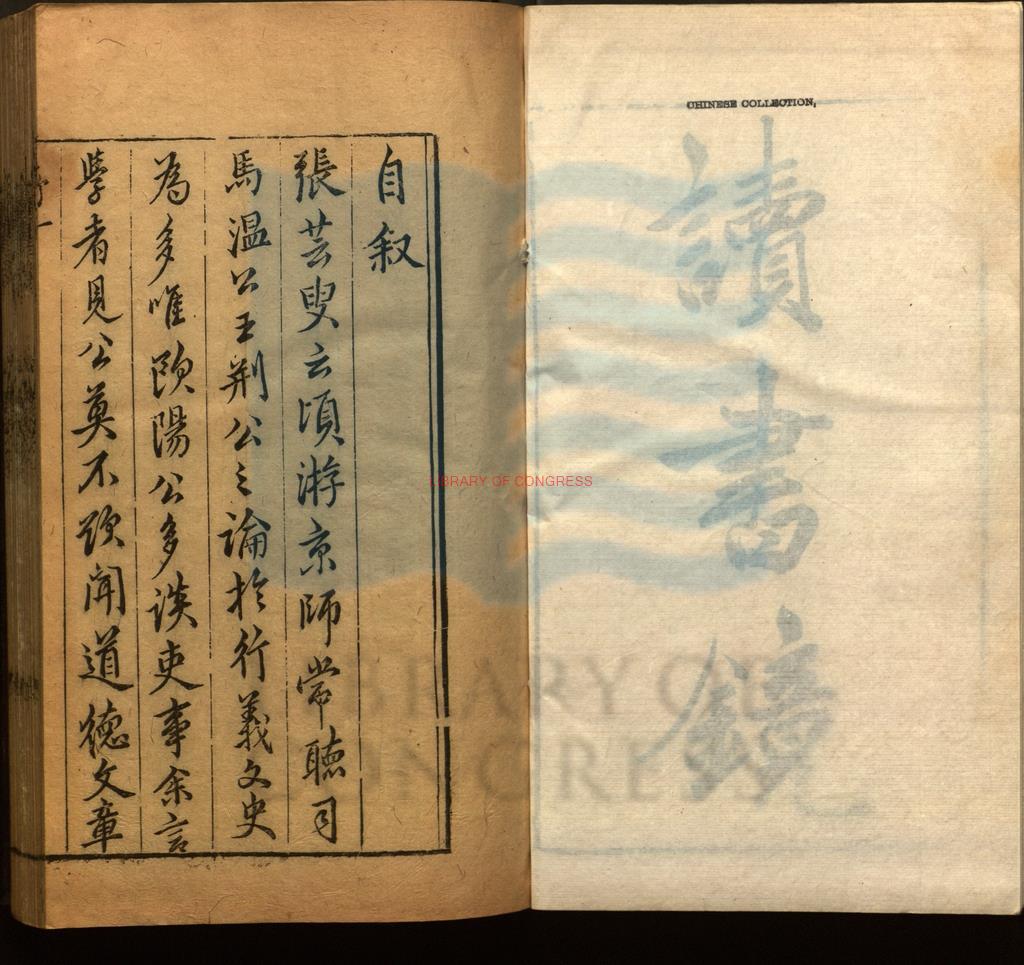 CHINESE COLLECTION,
讀書鏡
自叙
張芸叟云頃游京師常聽司
馬溫公王荆公之論於行義文史
為多唯歐陽公多談吏事余言
學者見公莫不欲聞道德文章
LIBRARY OF CONGRESS
LIBRARY OF
CONGRESS